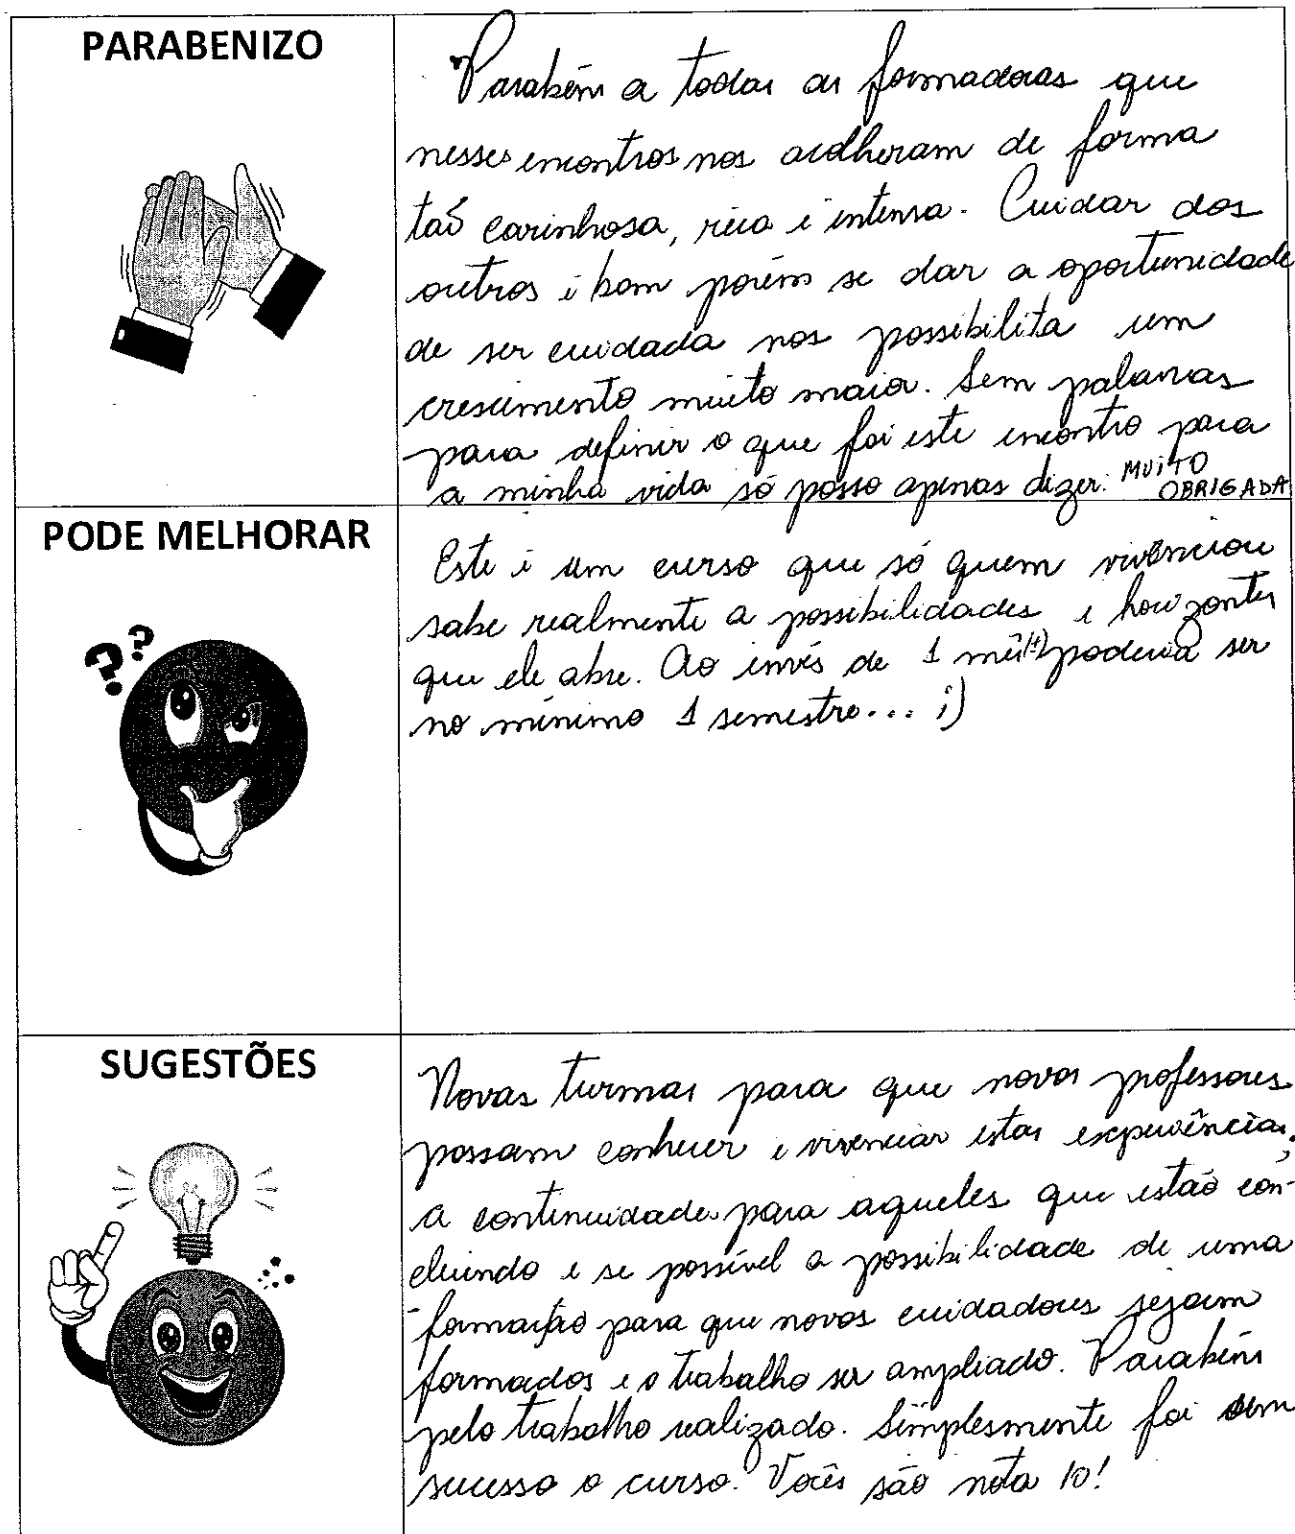 PARABENIZO
Parabéns a todas as formadoras que
nesses encontros nos acolheram de forma
tão carinhosa, rica e intensa. Cuidar dos
outros é bom porém se dar a oportunidade
de ser cuidada nos possibilita um
crescimento muito maior. Sem palavras
para definir o que foi este encontro para
a minha vida só posso apenas dizer: MUITO
OBRIGADA
PODE MELHORAR
Este é um curso que só quem vivênciou
sabe realmente a possibilidades e horizontes
que ele abre. Ao invés de 1 mês poderia ser
no mínimo 1 semestre... ;)
SUGESTÕES
Novas turmas para que novos professores
possam conhecer e vivenciar estas experiências,
a continuidade para aqueles que estão con-
cluindo e se possível a possibilidade de uma
formação para que novos cuidadores sejam
formados e o trabalho ser ampliado. Parabéns
pelo trabalho realizado. Simplesmente foi um
sucesso o curso. Vocês são nota 10!